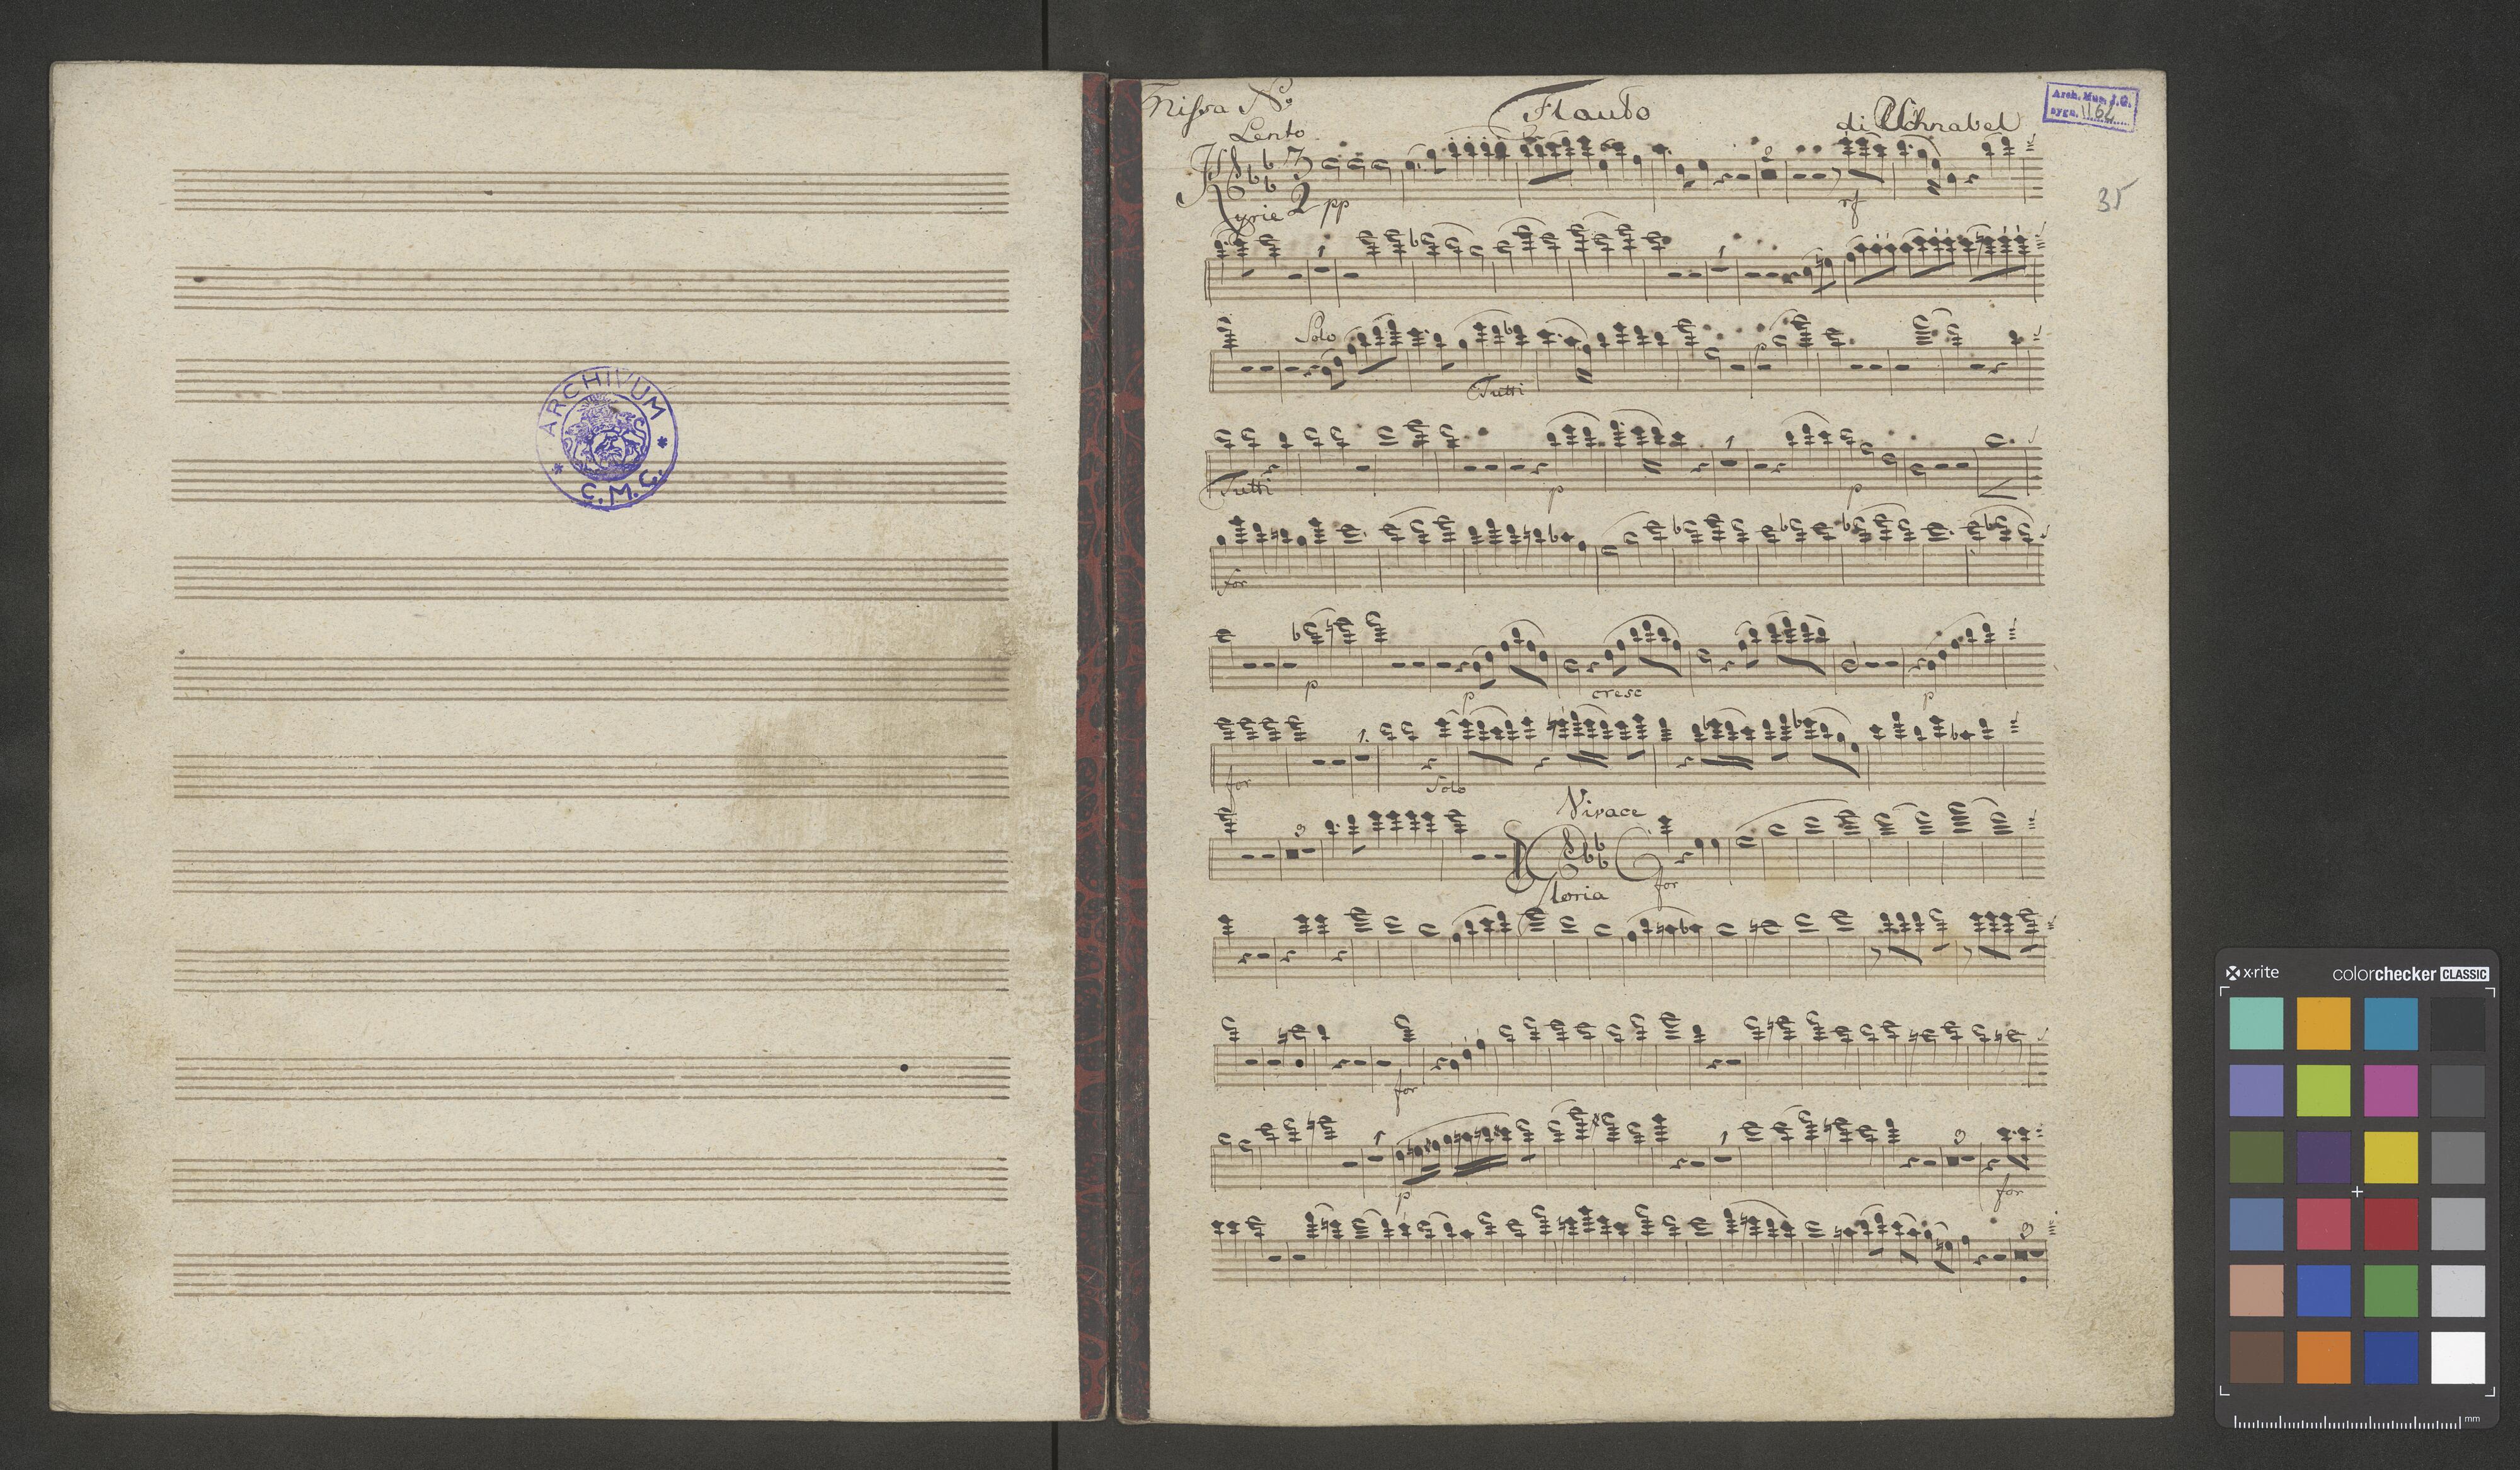 ARCHIVUM
C.M.C.
Missa No.
Flauto
di Schnabel
Arch. Mus. J.G.
sygn. 1162
35
Lento
Kyrie
pp
rf
Solo
p
Tutti
Tutti
p
p
for
p
p
cresc
p
for
1.
Solo
Vivace
3
Gloria
for
for
1
p
1
3
for
3
x-rite
colorchecker CLASSIC
mm